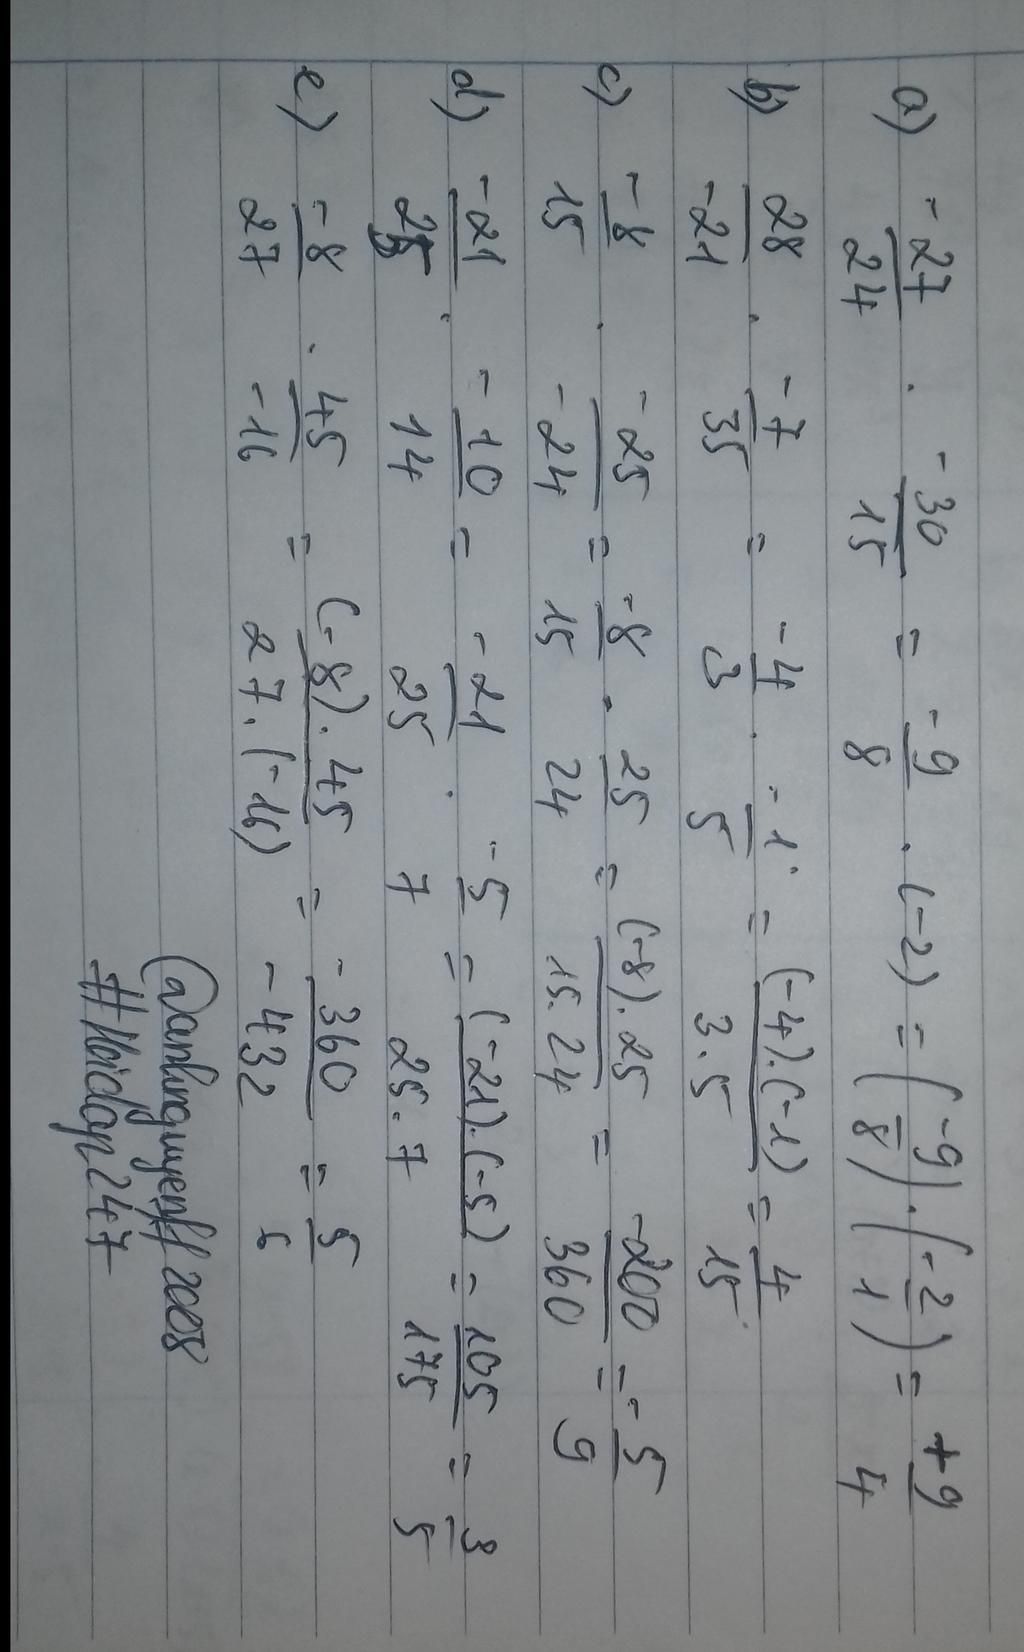 a) -27/24 . -30/15 = -9/8 . (-2) = (-9/8) . (-2/1) = +9/4
b) 28/-21 . -7/35 = -4/3 . -1/5 = (-4).(-1)/3.5 = 4/15
c) -8/15 . -25/-24 = -8/15 . 25/24 = (-8).25/15.24 = -200/360 = -5/9
d) -21/25 . -10/14 = -21/25 . -5/7 = (-21).(-5)/25.7 = 105/175 = 3/5
e) -8/27 . 45/-16 = (-8).45/27.(-16) = -360/-432 = 5/6
#Hoidap247